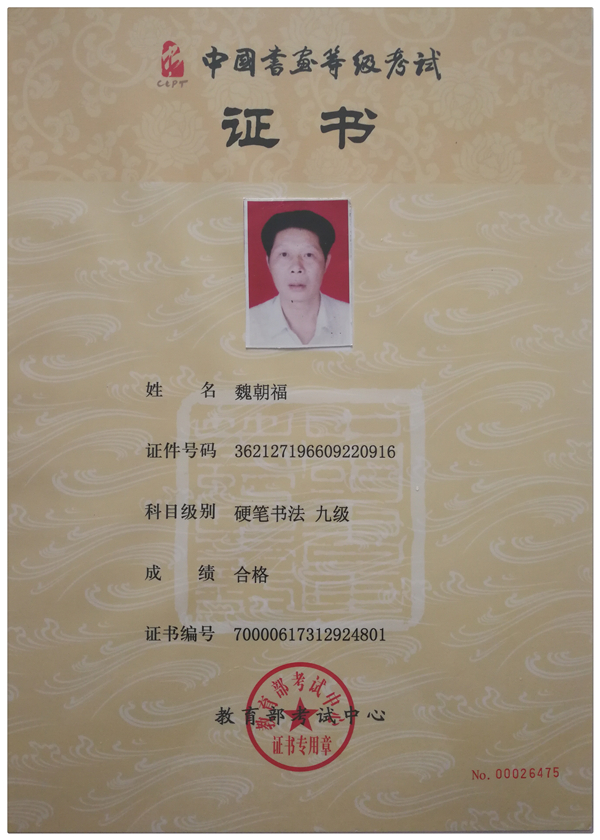 中国书画等级考试
CCPT
证书
姓名 魏朝福
证件号码 362127196609220916
科目级别 硬笔书法 九级
成绩 合格
证书编号 70000617312924801
教育部考试中心
教育部考试中心
证书专用章
No. 00026475